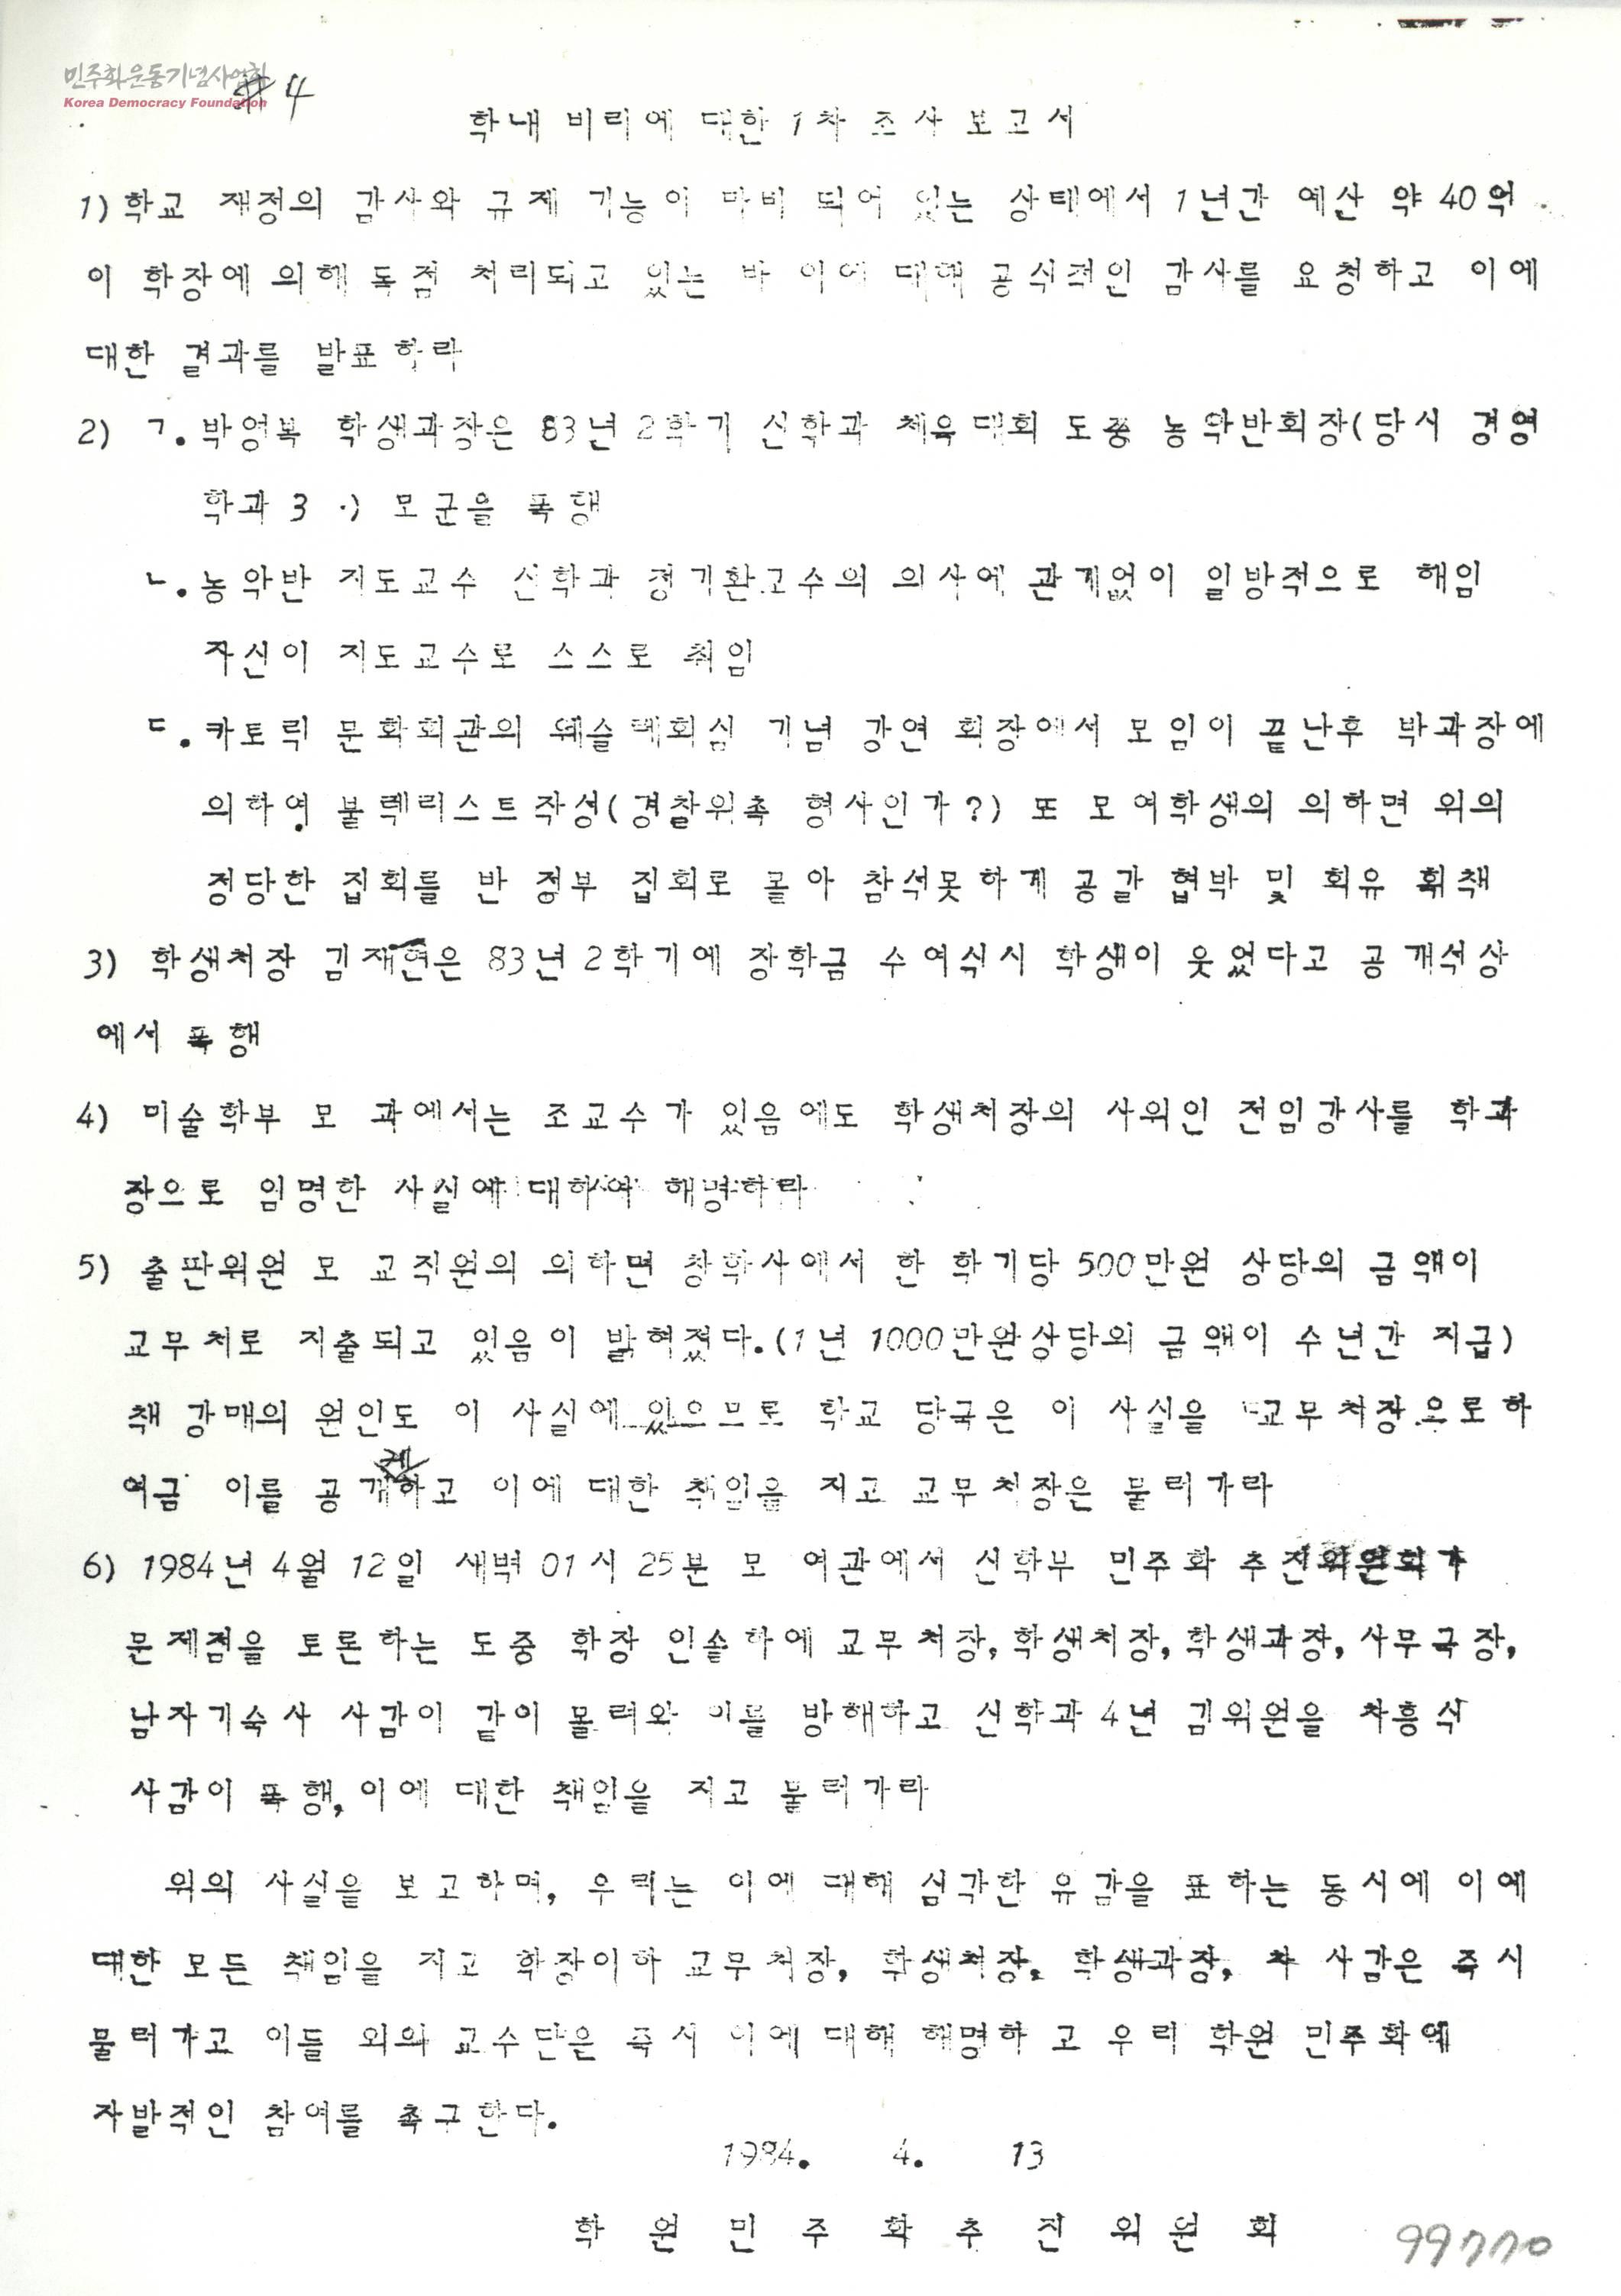 민주화운동기념사업회
Korea Democracy Foundation
#4
학내 비리에 대한 1차 조사 보고서
1) 학교 재정의 감사와 규제 기능이 마비 되어 있는 상태에서 1년간 예산 약 40억
이 학장에 의해 독점 처리되고 있는 바 이에 대해 공식적인 감사를 요청하고 이에
대한 결과를 발표하라
2) ㄱ. 박영복 학생과장은 83년 2학기 신학과 체육대회 도중 농악반회장(당시 경영
학과 3 ·) 모군을 폭행
ㄴ. 농악반 지도교수 신학과 정기환교수의 의사에 관계없이 일방적으로 해임
자신이 지도교수로 스스로 취임
ㄷ. 카토릭 문화회관의 웨슬레회심 기념 강연 회장에서 모임이 끝난후 박과장에
의하여 불렉리스트작성(경찰위촉 형사인가?) 또 모여학생의 의하면 위의
정당한 집회를 반 정부 집회로 몰아 참석못하게 공갈 협박 및 회유 획책
3) 학생처장 김재현은 83년 2학기에 장학금 수여식시 학생이 웃었다고 공개석상
에서 폭행
4) 미술학부 모 과에서는 조교수가 있음에도 학생처장의 사위인 전임강사를 학과
장으로 임명한 사실에 대하여 해명하라
5) 출판위원 모 교직원의 의하면 창학사에서 한 학기당 500만원 상당의 금액이
교무처로 지출되고 있음이 밝혀졌다.(1년 1000만원상당의 금액이 수년간 지급)
책 강매의 원인도 이 사실에 있으므로 학교 당국은 이 사실을 교무처장으로하
게
여금 이를 공개하고 이에 대한 책임을 지고 교무처장은 물러가라
6) 1984년 4월 12일 새벽 01시 25분 모 여관에서 신학부 민주화 추진위원회가
문제점을 토론하는 도중 학장 인솔하에 교무처장, 학생처장, 학생과장, 사무국장,
남자기숙사 사감이 같이 몰려와 이를 방해하고 신학과 4년 김위원을 차흥식
사감이 폭행, 이에 대한 책임을 지고 물러가라
위의 사실을 보고하며, 우리는 이에 대해 심각한 유감을 표하는 동시에 이에
대한 모든 책임을 지고 학장이하 교무처장, 학생처장, 학생과장, 차 사감은 즉시
물러가고 이들 외의 교수단은 즉시 이에 대해 해명하고 우리 학원 민주화에
자발적인 참여를 촉구한다.
1984. 4. 13
학원민주화추진위원회